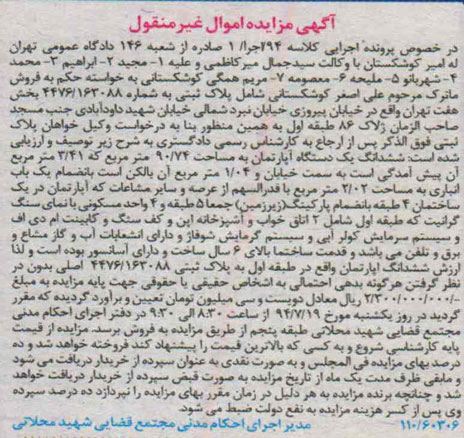 آگهی مزایده اموال غیر منقول
در خصوص پرونده اجرایی کلاسه ۹۴/اجرا/۱ صادره از شعبه ۱۴۶ دادگاه عمومی تهران
له امیر کوشکستان با وکالت سیدجمال میرکاظمی و علیه ۱- مجید ۲- ابراهیم ۳- محمد
۴- شهربانو ۵- ملیحه ۶- معصومه ۷- مریم همگی کوشکستانی به خواسته حکم به فروش
ماترک مرحوم علی اصغر کوشکستانی شامل پلاک ثبتی به شماره ۴۴۷۶/۱۶۳۰۸۸ بخش
هفت تهران واقع در خیابان پیروزی خیابان نبرد شمالی خیابان شهید داودآبادی جنب مسجد
صاحب الزمان ژلاک ۸۶ طبقه اول به همین منظور بنا به درخواست وکیل خواهان پلاک
ثبتی فوق الذکر پس از ارجاع به کارشناس رسمی دادگستری به شرح زیر توصیف و ارزیابی
شده است: ششدانگ یک دستگاه آپارتمان به مساحت ۹۰/۷۴ متر مربع که ۳/۴۱ متر مربع
آن پیش آمدگی است به سمت خیابان و ۱/۰۴ متر مربع آن بالکن است بانضمام یک باب
انباری به مساحت ۲/۰۲ متر مربع با قدرالسهم از عرصه و سایر مشاعات که آپارتمان در یک
ساختمان ۴ طبقه بانضمام پارکینگ(زیرزمین) جمعا ۵ طبقه و ۴ واحد مسکونی با نمای سنگ
گرانیت که طبقه اول شامل ۲ اتاق خواب و آشپزخانه اپن و کف سنگ و کابینت ام دی اف
و سیستم سرمایش کولر آبی و سیستم گرمایش شوفاژ و دارای انشعابات آب و گاز مشاع و
برق و تلفن می باشد و قدمت ساختما بالای ۶ سال ساخت و دارای آسانسور بوده است و لذا
ارزش ششدانگ اپارتمان واقع در طبقه اول به پلاک ثبتی ۴۴۷۶/۱۶۳۰۸۸ اصلی بدون در
نظر گرفتن هرگونه بدهی احتمالی به اشخاص حقیقی یا حقوقی جهت پایه مزایده به مبلغ
۲/۳۰۰/۰۰۰/۰۰۰/- ریال معادل دویست و سی میلیون تومان تعیین و برآورد گردیده که مقرر
گردید در روز یکشنبه مورخ ۹۴/۷/۱۹ از ساعت ۸:۳۰ الی ۹:۳۰ در دفتر اجرای احکام مدنی
مجتمع قضایی شهید محلاتی طبقه پنجم از طریق مزایده به فروش برسد. مزایده از قیمت
پایه کارشناسی شروع و به کسی که بالاترین قیمت را پیشنهاد کند فروخته خواهد شد و ده
درصد بهای مزایده فی المجلس و به صورت نقدی به عنوان سپرده از خریدار دریافت می شود
و مابقی ظرف مدت یک ماه از تاریخ مزایده به صورت قبض سپرده از خریدار دریافت خواهد
شد و چنانچه برنده مزایده به هر دلیل در زمان مقرر بهای مزایده را نپردازد ده درصد سپرده
وی پس از کسر هزینه مزایده به نفع دولت ضبط می شود.
۱۱۰/۶۰۳۰۶ مدیر اجرای احکام مدنی مجتمع قضایی شهید محلاتی